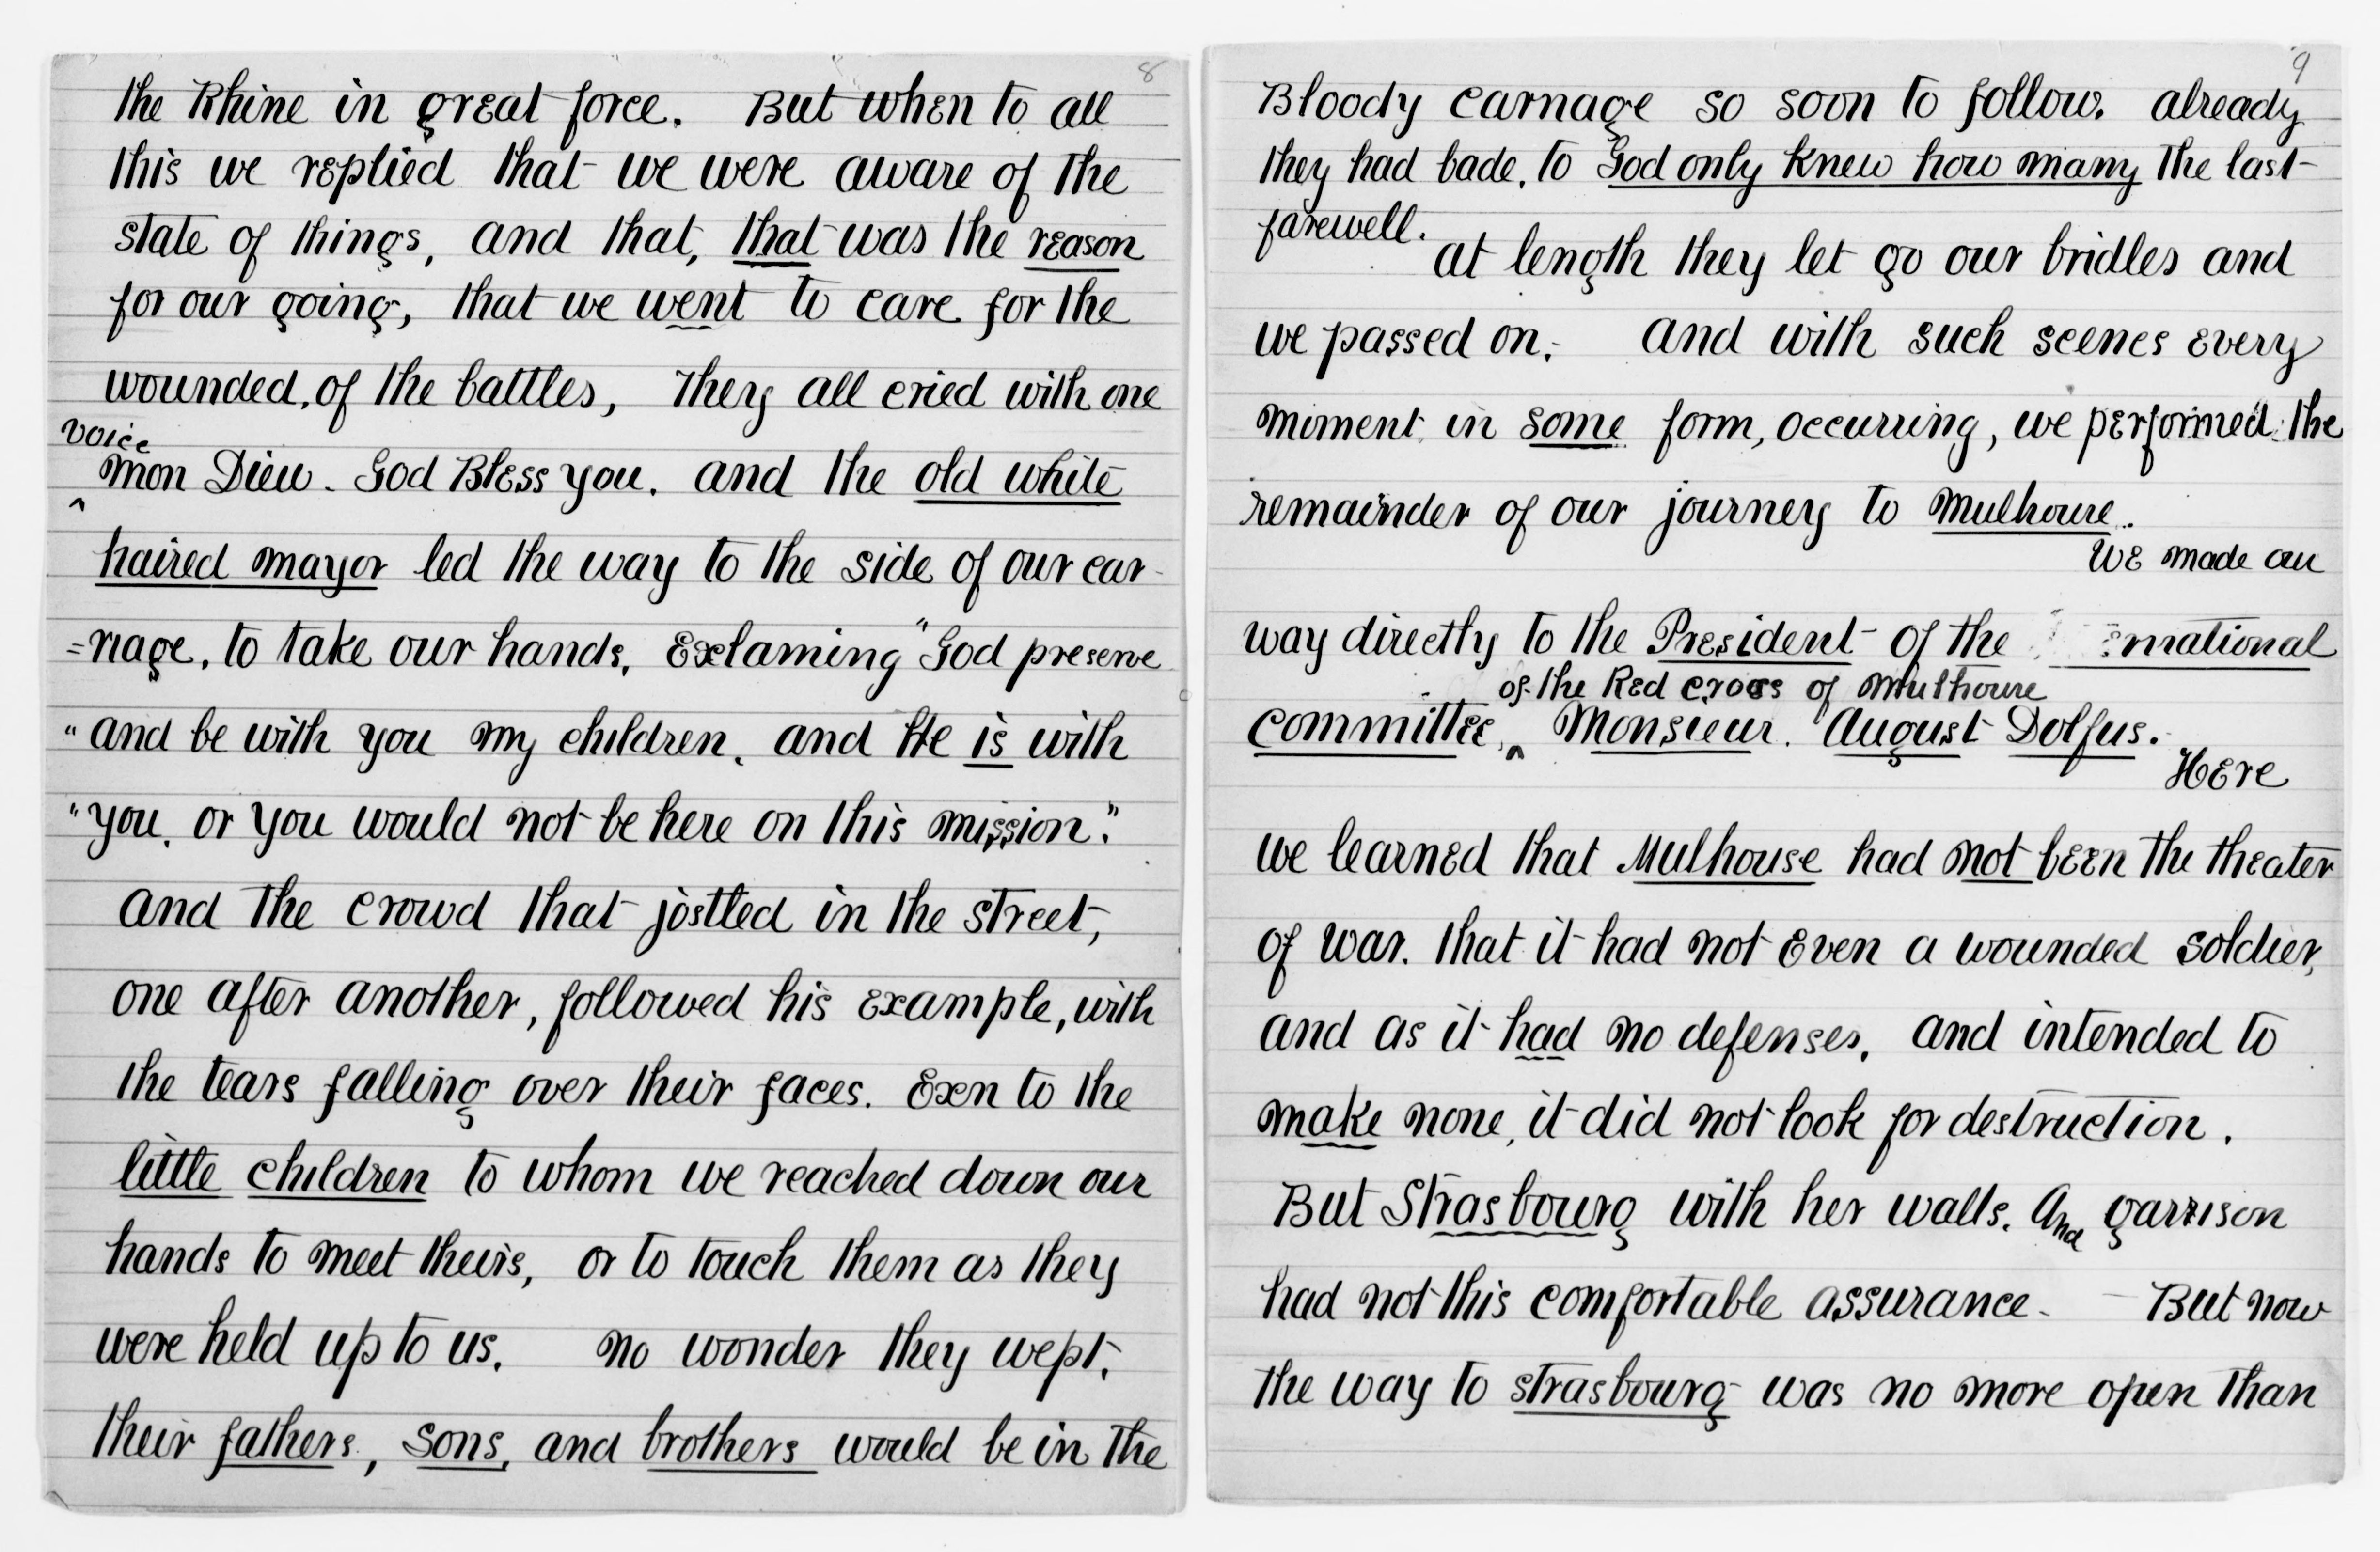 8
the Rhine in great force. But when to all
this we replied that we were aware of the
state of things, and that, that was the reason
for our going, that we went to care for the
wounded, of the battles, They all cried with one
voice
^ mon Dieu. God Bless you. and the old white
haired mayor led the way to the side of our car-
=riage, to take our hands, Exclaming "God preserve
"and be with you my children, and He is with
"you, or you would not be here on this mission."
and the crowd that jostled in the street,
one after another, followed his example, with
the tears falling over their faces. Even to the
little children to whom we reached down our
hands to meet theirs, or to touch them as they
were held up to us. no wonder they wept.
their fathers, sons, and brothers would be in the
9
Bloody carnage so soon to follow. already
they had bade, to God only knew how many the last
farewell.
at length they let go our bridles and
we passed on. and with such scenes every
moment in some form, occurring, we performed the
remainder of our journey to Mulhouse.
We made our
way directly to the President of the
of the Red Cross of Mulhouse
committee, ^ Monsieur. August Dolfus.
Here
we learned that Mulhouse had not been the theater
of war. that it had not Even a wounded soldier,
and as it had no defenses, and intended to
make none, it did not look for destruction.
But Strasbourg with her walls, And garrison
had not this comfortable assurance - But now
the way to Strasbourg was no more open than